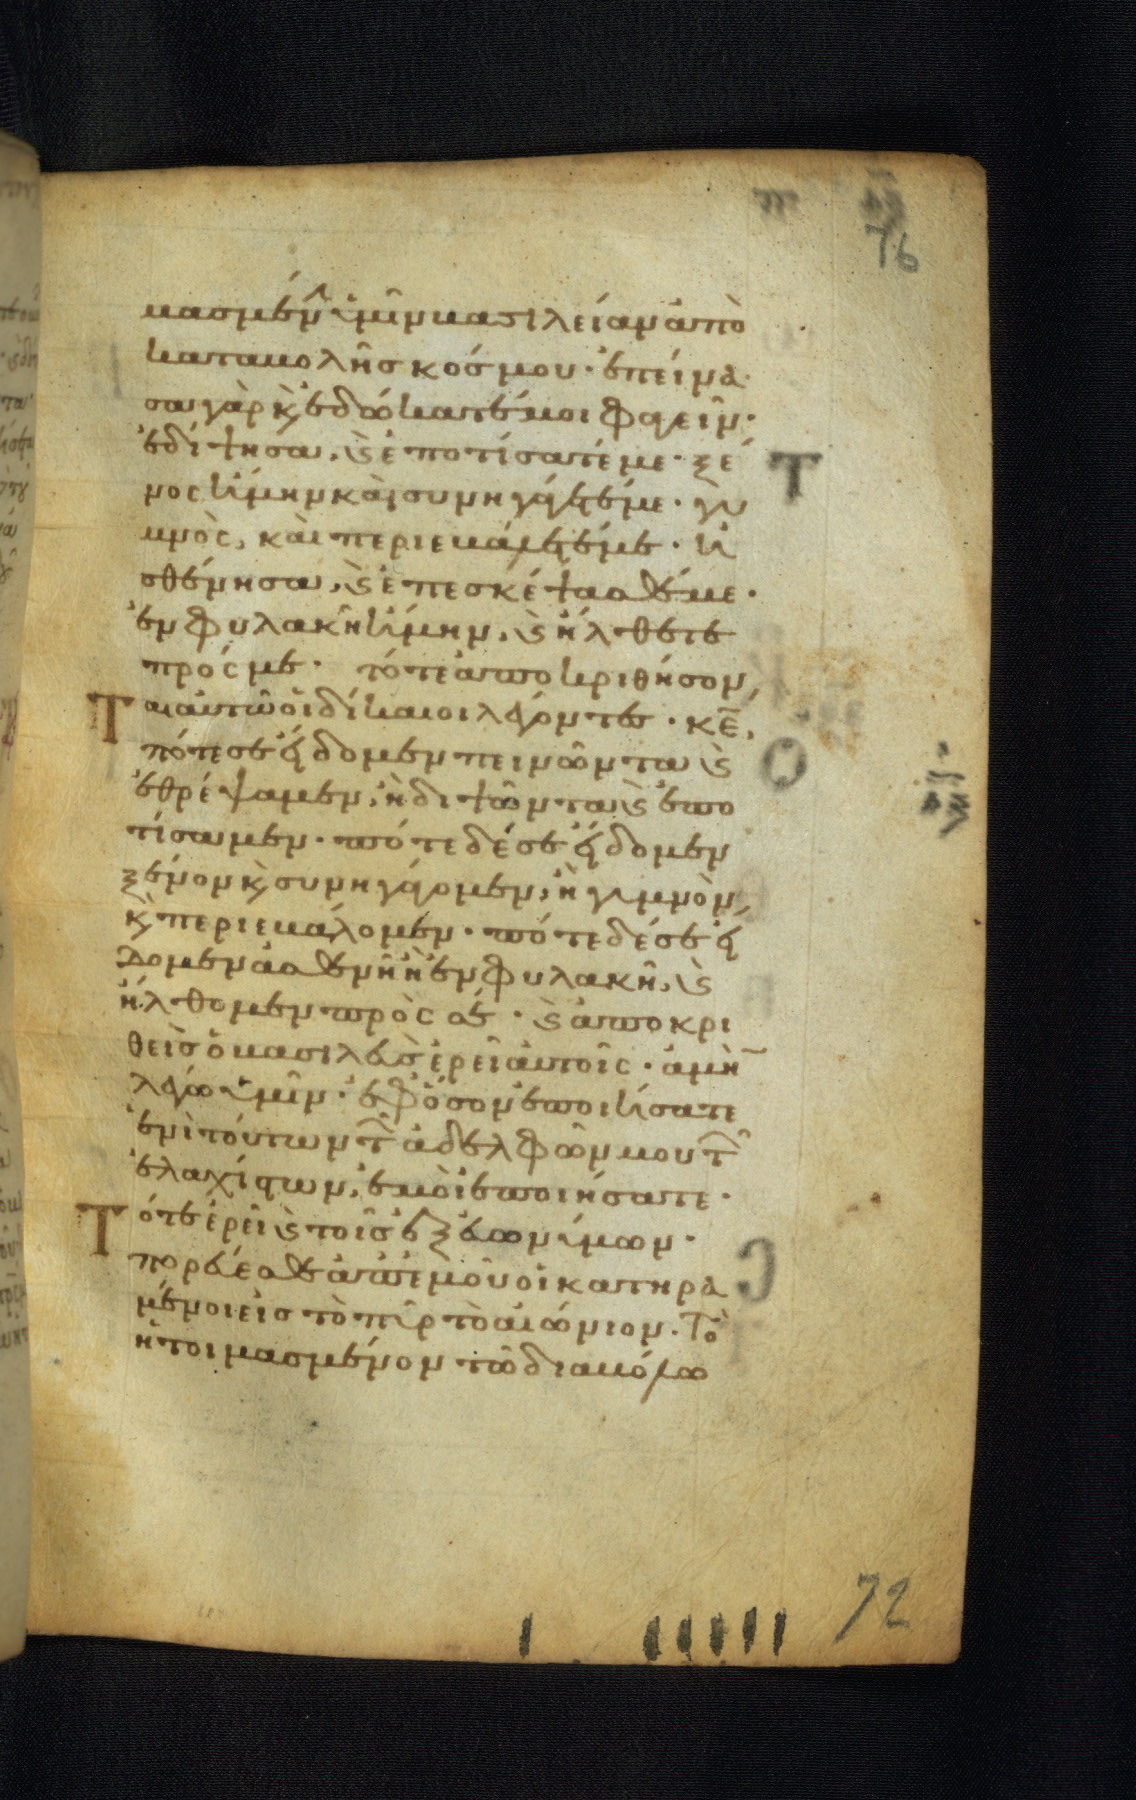 76
μασμένην ὑμῖν βασιλείαν ἀπὸ
καταβολῆσ κόσμου · ἐπείνα
σα γὰρ κ̀ ἐδώκατέ μοι φαγεῖν ·
ἐδίψησα, ϗ̀ ἐποτίσατέ με · ξέ
νος ἤμην καὶ συνηγάγετέ με · γυ
μνὸς, καὶ περιεβάλετέ με · ἠ
σθένησα, ϗ̀ ἐπεσκέψασθέ με ·
ἐν φυλακῆ ἤμην, ϗ̀ ἤλθετε
πρός με · τότε ἀποκριθήσον
Ται αὐτῶ οἱ δίκαιοι λέγοντες · κ̅ε̅,
πότε σε εἴδομεν πεινῶντα ϗ̀
ἐθρέψαμεν, ἢ διψῶντα ϗ̀ ἐπο
τίσαμεν · πότε δέ σε εἴδομεν
ξένον κ̀ συνηγάγομεν, ἢ γυμνὸν,
κ̀ περιεβάλομεν · πότε δέ σε εἴ
δομεν ἀσθενῆ ἢ ἐν φυλακῆ, ϗ̀
ἤλθομεν πρὸς σέ · ϗ̀ ἀποκρι
θεὶσ ὁ βασιλεὺσ ἐρεῖ αὐτοῖς · ἀμὴν
λέγω ὑμῖν · ἐφ ὅσον ἐποιήσατε
ἑνὶ τούτων τῶν ἀδελφῶν μου τῶν
ἐλαχίστων, ἐμοὶ ἐποιήσατε ·
Τότε ἐρεῖ ϗ̀ τοῖσ ἐξ εὐωνύμων ·
πορεύεσθε ἀπ ἐμοῦ οἱ κατηρα
μένοι εἰσ τὸ πῦρ τὸ αἰώνιον · Τὸ
ἡτοιμασμένον τῶ διαβόλω
72